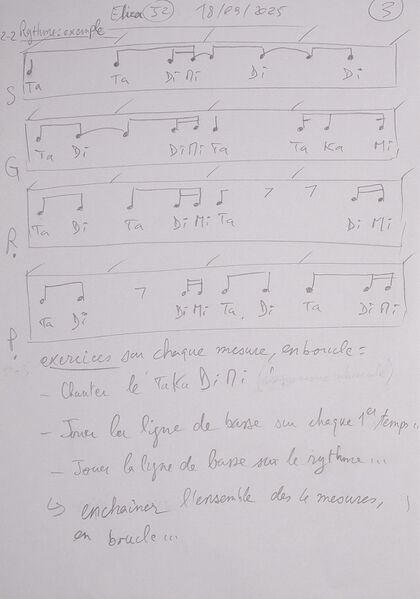 18/09/2025 3
2-2 Rythme: exemple
S Ta Ta Di Mi Di Di
G Ta Di Di Mi Ta Ta Ka Mi
R. Ta Di Ta Di Mi Ta Di Mi
P. Ta Di Di Mi Ta Di Ta Di Mi
exercices sur chaque mesure, en boucle =
- Chanter le Taka Di Mi
- Jouer la ligne de basse sur chaque 1er temps...
- Jouer la ligne de basse sur le rythme...
↳ enchaîner l'ensemble des 4 mesures,
en boucle...